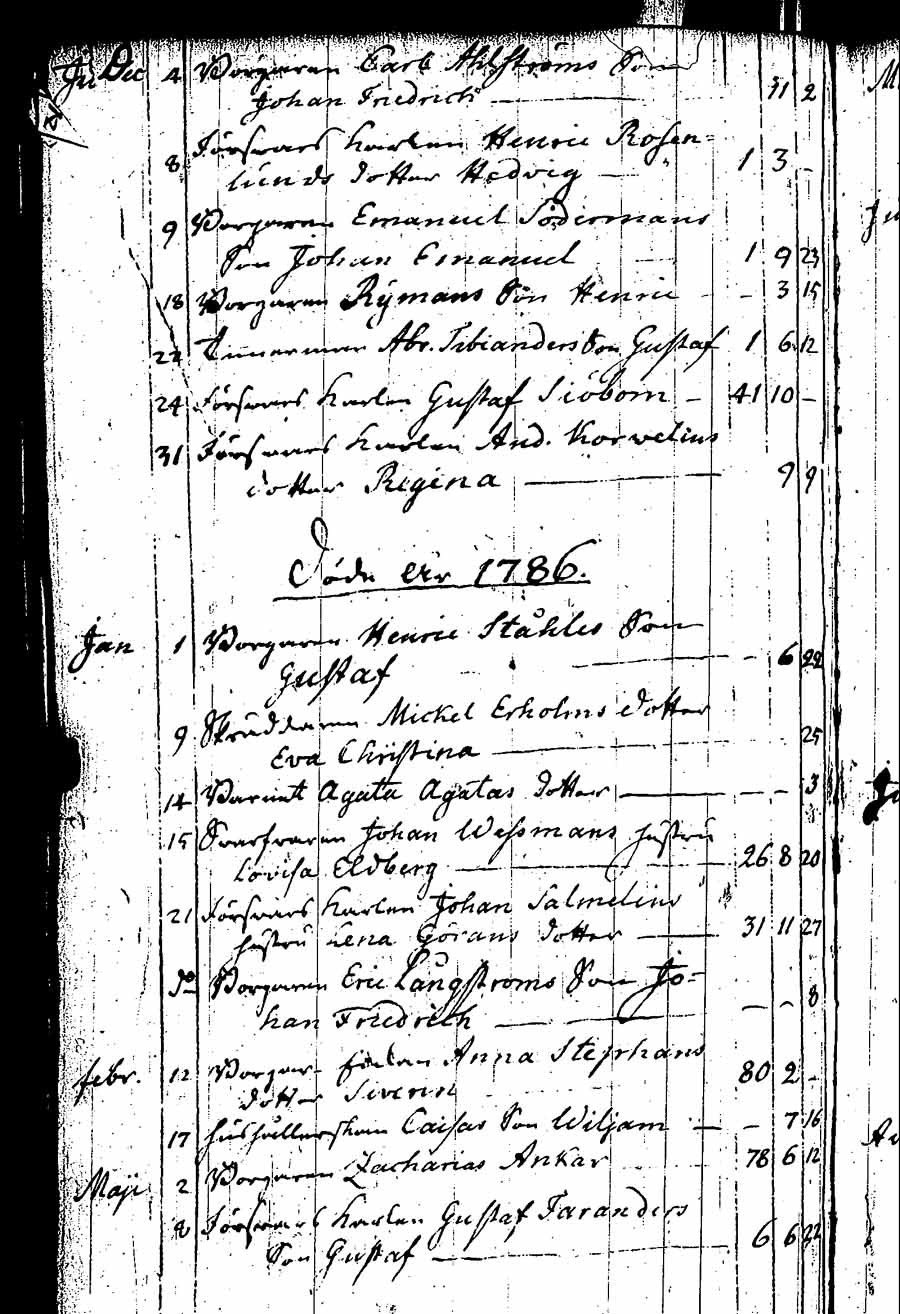 Dec 4 Borgaren Carl Ahlströms Son
Johan Friedrich — 11 2
8 Försvars Karlen Henric Rosen=
lunds dotter Hedvig — 1 3 -
9 Borgaren Emanuel Södermans
Son Johan Emanuel 1 9 23
18 Borgaren Rymans Son Henric - - 3 15
22 Timerman Abr. Tibianders Son Gustaf 1 6 12
24 Försvars Karlen Gustaf Siöbom - 41 10 -
31 Försvars Karlen And. Korvelius
dotter Regina — 9 9
Döde år 1786.
Jan 1 Borgaren Henric Ståhles Son
Gustaf — 6 22
9 Skräddaren Mickel Erholms dotter
Eva Christina — 25
14 Barnet Agata Agatas dotter — - - 3
15 Svarfvaren Johan Wessmans hustru
Lovisa Eldberg — 26 8 20
21 Försvars Karlen Johan Salmelius
hustru Lena Görans dotter — 31 11 27
do Borgaren Eric Långströms Son Jo=
han Friedrich — - - 8
febr. 12 Borgar Enkan Anna Stephans
dotter Siverin 80 2 -
17 hushållerskan Caisas Son Wiljam — - 7 16
Maji 2 Borgaren Zacharias Ankar 78 6 12
8 Försvars Karlen Gustaf Taranders
Son Gustaf — 6 6 22